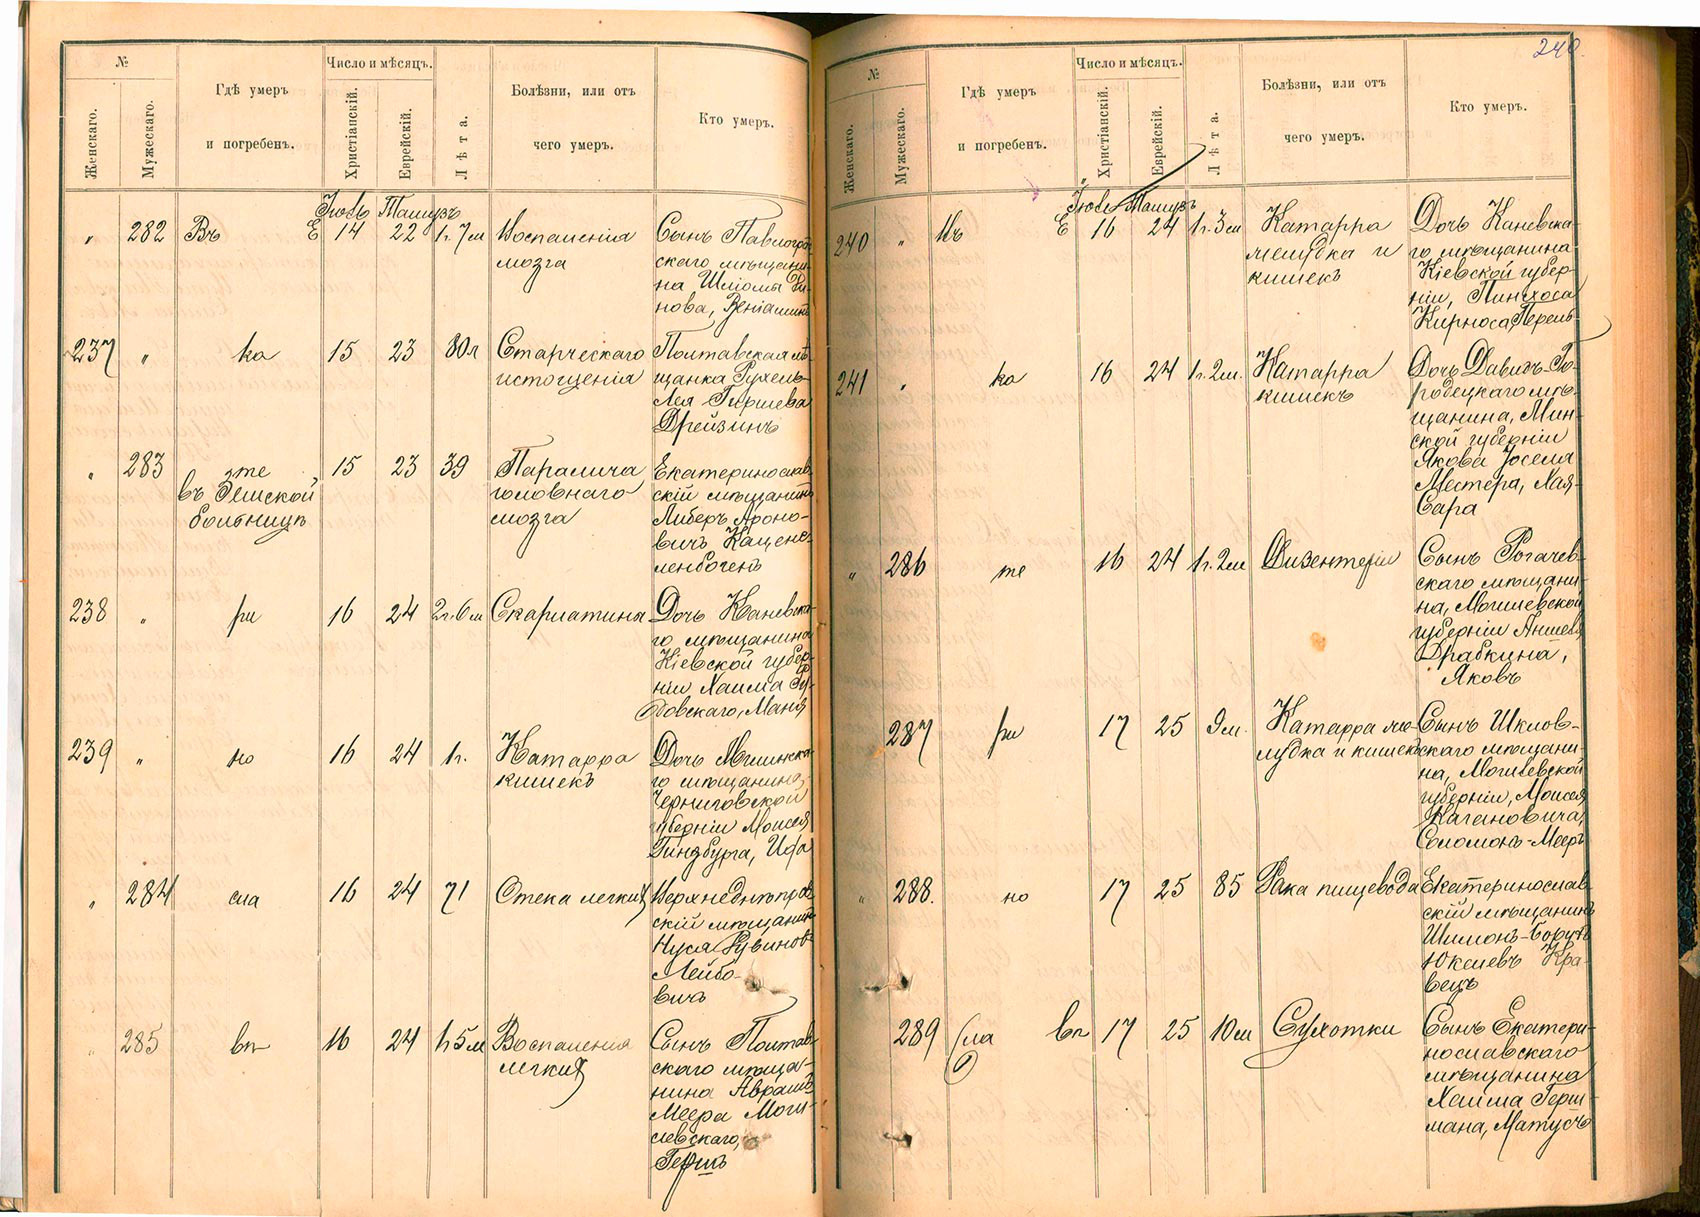 №
Женскаго.
Мужескаго.
Гдѣ умеръ
и погребенъ.
Число и мѣсяцъ.
Христіанскій.
Еврейскій.
Лѣта.
Болѣзни, или отъ
чего умеръ.
Кто умеръ.
Іюль Тамузъ
" 282 Въ Е 14 22 1г. 7м Воспаленія Сынъ Павлоград
мозга скаго мѣщани-
на Шліомы
нова, Веніаминъ
237 " ка 15 23 80л Старческаго Полтавская мѣ-
истощенія щанка Рухель-
Лея Гиршева
Дрейзинъ
" 283 те 15 23 39 Паралича Екатеринослав
въ Земской головнаго скій мѣщанинъ
больницѣ мозга Либеръ Ароно-
вичъ Каценел-
ленбогенъ
238 " ри 16 24 2г. 6м Скарлатина Дочь Каневска-
го мѣщанина
Кіевской губер-
ніи Хаима
довскаго, Маня
239 " но 16 24 1г. Катарра Дочь Мглинска-
кишекъ го мѣщанина,
Черниговской
губерніи Моисея
Гинзбурга,
" 284 сла 16 24 71 Отека легкихъ Верхнеднѣпров
скій мѣщанинъ
Нуся Рувинов
Лейбо-
вичъ
" 285 вп 16 24 1г 5м Воспаленія Сынъ Полтав-
легкихъ скаго мѣща-
нина Аврамъ
Меера Моги-
левскаго,
Гершъ
240
№
Женскаго.
Мужескаго.
Гдѣ умеръ
и погребенъ.
Число и мѣсяцъ.
Христіанскій.
Еврейскій.
Лѣта.
Болѣзни, или отъ
чего умеръ.
Кто умеръ.
Іюль Тамузъ
240 " Въ Е 16 24 1г. 3м Катарра Дочь Каневска-
желудка и го мѣщанина
кишекъ Кіевской губер-
ніи, Пинхоса
Кирноса Перель
241 " ка 16 24 1г. 2м. Катарра Дочь Давидъ-Го-
кишекъ родецкаго мѣ-
щанина, Мин-
ской губерніи
Якова Іоселя
Местера, Хая-
Сара
" 286 те 16 24 1г. 2м Дизентеріи Сынъ Рогачев-
скаго мѣщани-
на, Могилевской
губерніи Аншеля
Драбкина,
Яковъ
287 ри 17 25 9м. Катарра же- Сынъ Шклов-
лудка и кишекъ скаго мѣщани-
на, Могилевской
губерніи, Моисея
Кагановича,
Соломонъ-Мееръ
" 288. но 17 25 85 Рака пищевода Екатеринослав-
скій мѣщанинъ
Шимонъ-Борухъ
Юкелевъ Кра-
вецъ
289 сла вп 17 25 10м Сухотки Сынъ Екатери-
нославскаго
мѣщанина
Хаима Герш-
мана, Матусъ